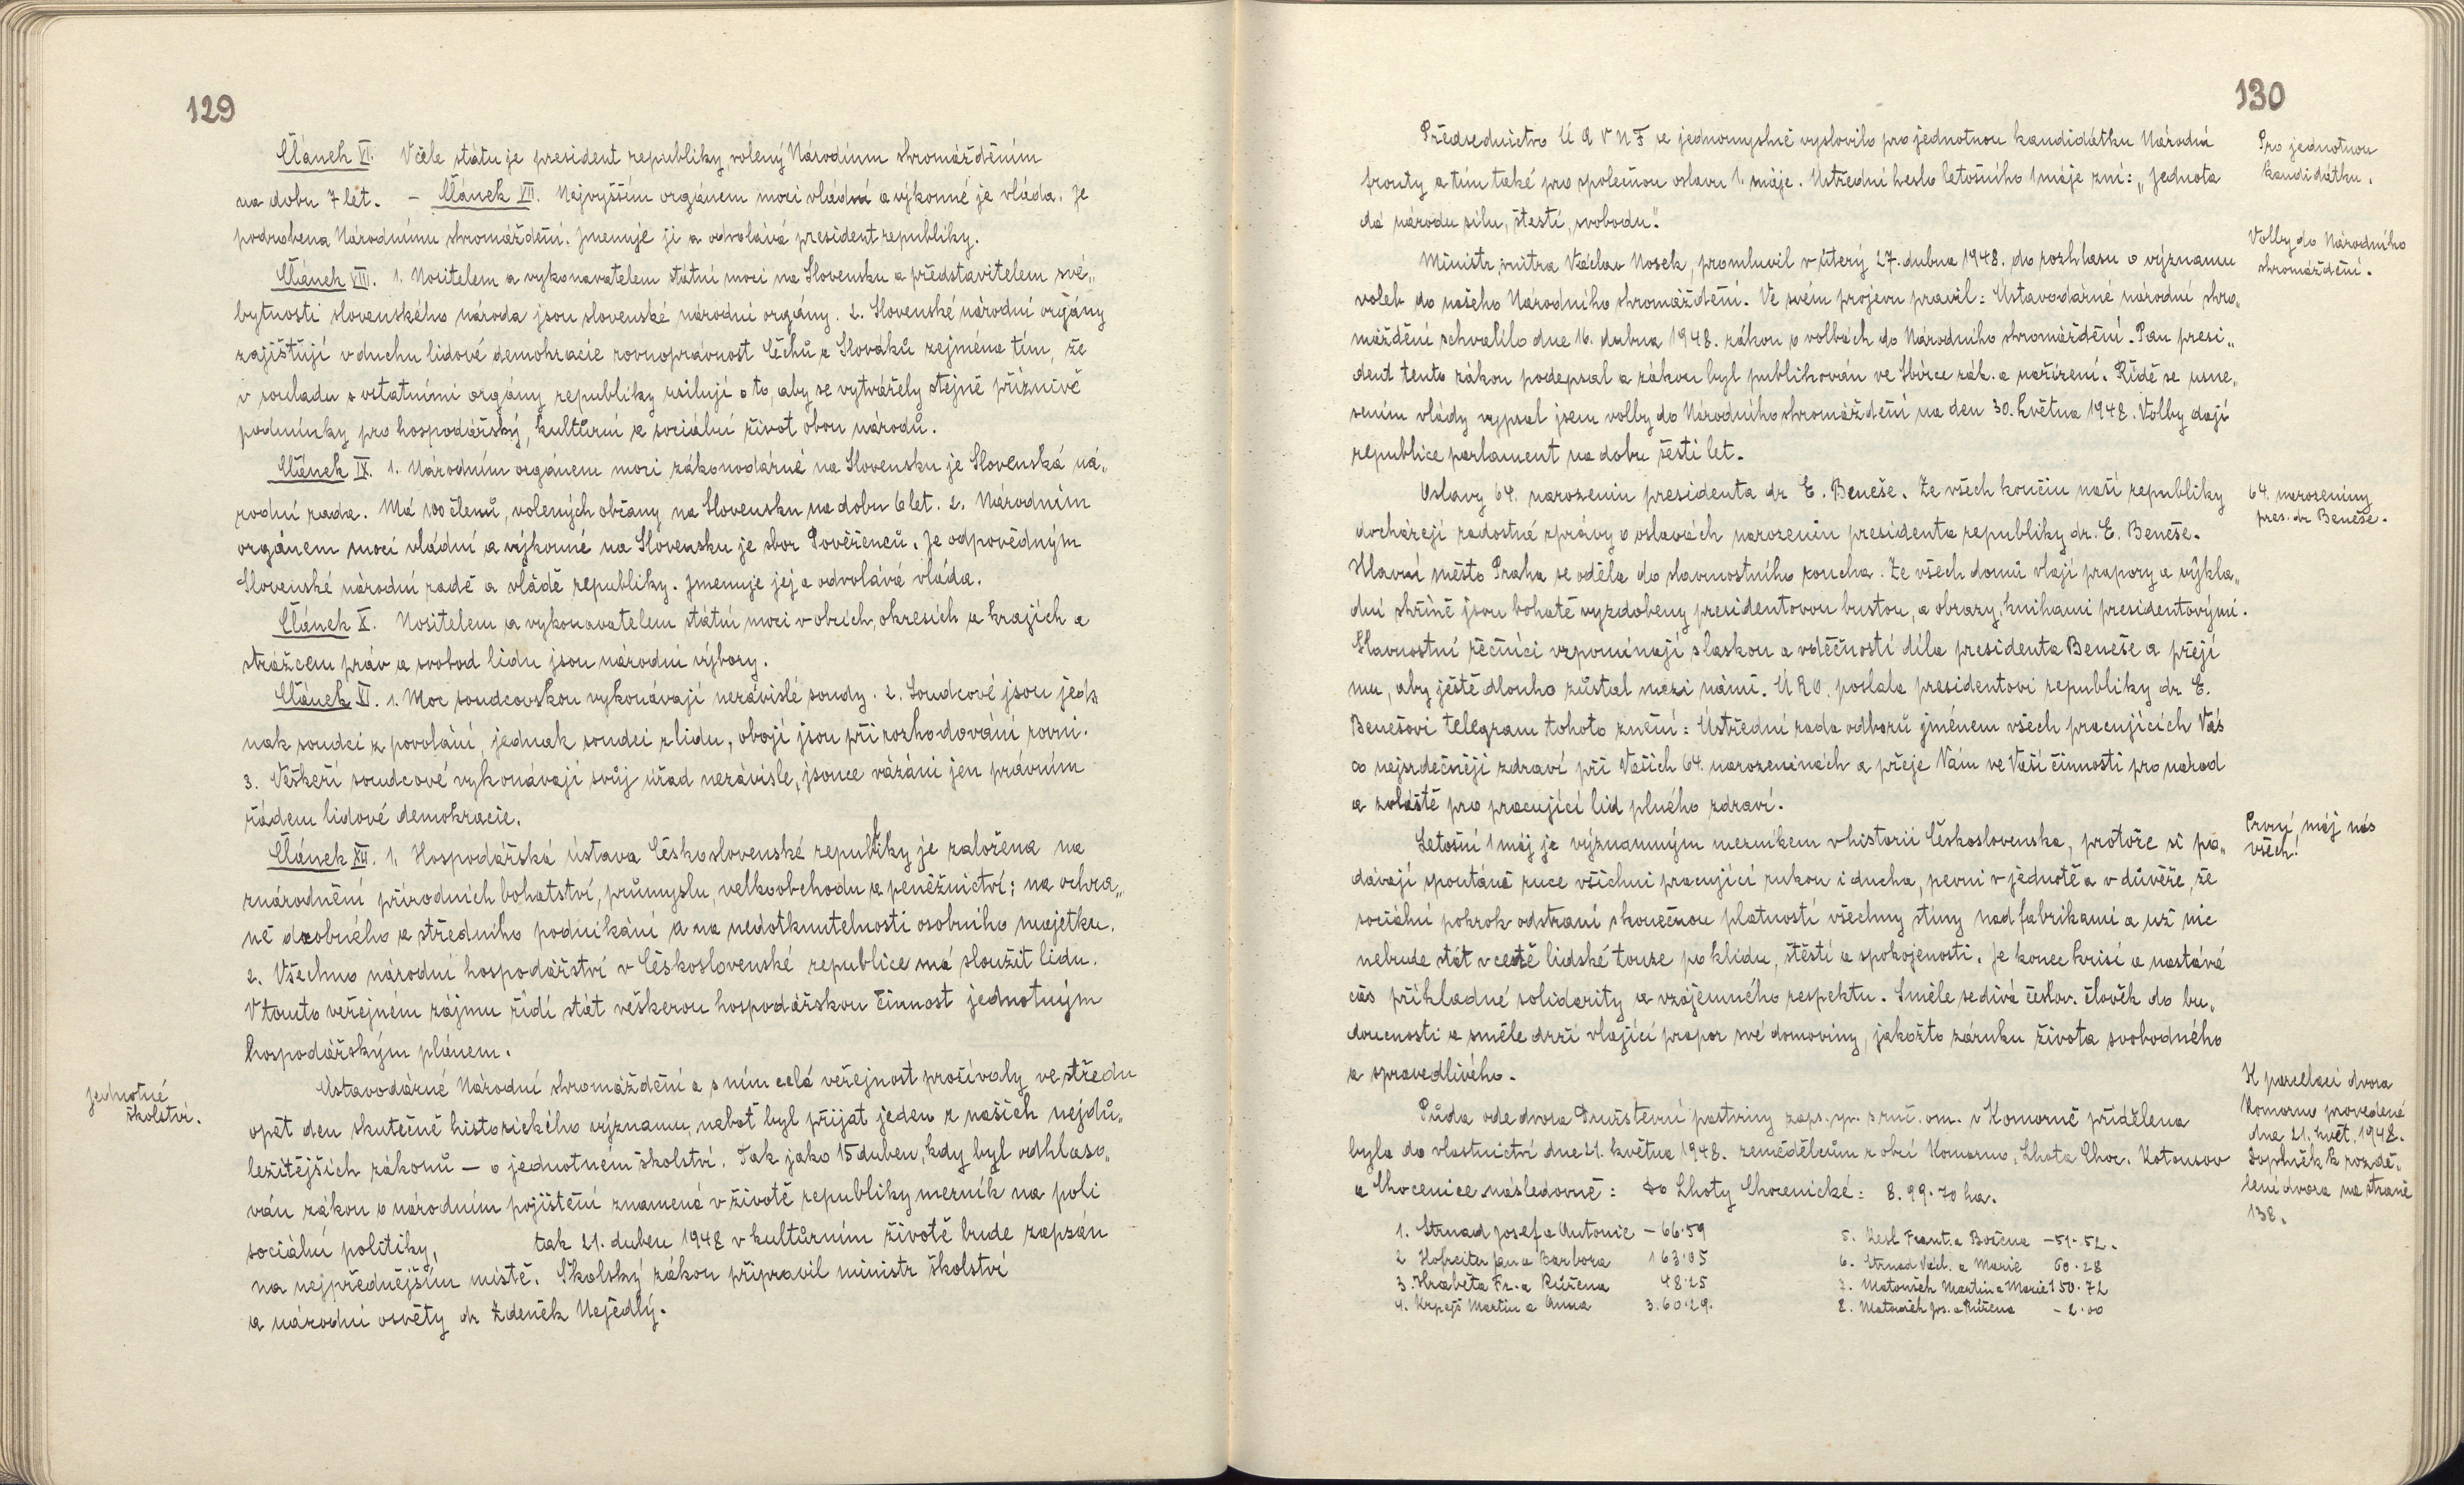 129
Článek VI. V čele státu je president republiky, volený Národním shromážděním
na dobu 7 let. – Článek VII. Nejvyšším orgánem moci vládní a výkonné je vláda. Je
podrobena Národnímu shromáždění. Jmenuje ji a odvolává president republiky.
Článek VIII. 1. Nositelem a vykonavatelem státní moci na Slovensku a představitelem své„
bytnosti slovenského národa jsou slovenské národní orgány. 2. Slovenské národní orgány
zajišťují v duchu lidové demokracie rovnoprávnost Čechů a Slováků zejména tím, že
v souladu s ostatními orgány republiky usilují o to, aby se vytvářely stejně příznivé
podmínky pro hospodářský, kulturní a sociální život obou národů.
Článek IX. 1. Národním orgánem moci zákonodárné na Slovensku je Slovenská ná„
rodní rada. Má 100 členů, volených občany na Slovensku na dobu 6 let. 2. Národním
orgánem moci vládní a výkonné na Slovensku je sbor Pověřenců. Je odpovědným
Slovenské národní radě a vládě republiky. Jmenuje jej a odvolává vláda.
Článek X. Nositelem a vykonavatelem státní moci v obcích, okresích a krajích a
strážcem práv a svobod lidu jsou národní výbory.
Článek XI. 1. Moc soudcovskou vykonávají nezávislé soudy. 2. Soudcové jsou jed„
nak soudci z povolání, jednak soudci z lidu, obojí jsou při rozhodování rovni.
3. Veškeří soudcové vykonávají svůj úřad nezávisle, jsouce vázáni jen právním
řádem lidové demokracie.
Článek XII. 1. Hospodářská ústava Československé republiky je založena na
znárodnění přírodních bohatství, průmyslu, velkoobchodu a peněžnictví; na ochra„
ně drobného a středního podnikání a na nedotknutelnosti osobního majetku.
2. Všechno národní hospodářství v Československé republice má sloužit lidu.
V tomto veřejném zájmu řídí stát veškerou hospodářskou činnost jednotným
hospodářským plánem.
Jednotné
školství.
Ústavodárné Národní shromáždění a s ním celá veřejnost prožívaly ve středu
opět den skutečně historického významu, neboť byl přijat jeden z našich nejdů„
ležitějších zákonů – o jednotném školství. Tak jako 15 duben, kdy byl odhlaso„
ván zákon o národním pojištění znamená v životě republiky mezník na poli
sociální politiky, tak 21. duben 1948 v kulturním životě bude zapsán
na nejpřednějším místě. Školský zákon připravil ministr školství
a národní osvěty dr Zdeněk Nejedlý.
130
Předsednictvo Ú A V N F se jednomyslně vyslovilo pro jednotnou kandidátku Národní
fronty a tím také pro společnou oslavu 1. máje. Ústřední heslo letošního 1 máje zní: „Jednota
dá národu sílu, štěstí, svobodu."
Pro jednotnou
kandidátku.
Ministr vnitra Václav Nosek, promluvil v úterý 27. dubna 1948. do rozhlasu o významu
voleb do našeho Národního shromáždění. Ve svém projevu pravil: Ústavodárné národní shro„
máždění schválilo dne 16. dubna 1948. zákon o volbách do Národního shromáždění. Pan presi„
dent tento zákon podepsal a zákon byl publikován ve Sbírce zák. a nařízení. Řídě se usne„
sením vlády vypsal jsem volby do Národního shromáždění na den 30. května 1948. Volby dají
republice parlament na dobu šesti let.
Volby do Národního
shromáždění.
Oslavy 64. narozenin presidenta dr E. Beneše. Ze všech končin naší republiky
docházejí radostné zprávy o oslavách narozenin presidenta republiky dr. E. Beneše.
Hlavní město Praha se oděla do slavnostního roucha. Ze všech domů vlají prapory a výkla„
dní skříně jsou bohatě vyzdobeny presidentovou bustou, a obrazy, knihami presidentovými.
Slavnostní řečníci vzpomínají s láskou a vděčností díla presidenta Beneše a přejí
mu, aby ještě dlouho zůstal mezi námi. Ú R O. poslala presidentovi republiky dr E.
Benešovi telegram tohoto znění: Ústřední rada odborů jménem všech pracujících Vás
co nejsrdečněji zdraví při Vašich 64. narozeninách a přeje Vám ve Vaší činnosti pro národ
a zvláště pro pracující lid plného zdraví.
64. narozeniny
pres. dr Beneše.
Letošní 1 máj je významným mezníkem v historii Československa, protože si po„
dávají spoutáné ruce všichni pracující rukou i ducha, pevni v jednotě a v důvěře, že
sociální pokrok odstraní s konečnou platností všechny stíny nad fabrikami a už nic
nebude stát v cestě lidské touze po klidu, štěstí a spokojenosti. Je konec krisí a nastává
čas příkladné solidarity a vzájemného respektu. Směle se dívá českov. člověk do bu„
doucnosti a směle drží vlající prapor své domoviny, jakožto záruku života svobodného
a spravedlivého.
První máj nás
všech!
Půda ode dvora Družstevní pastviny zaps. sp. s ruč. om. v Komorně přidělena
byla do vlastnictví dne 21. května 1948. zemědělcům z obcí Komorno, Lhota Choc. Kotousov
a Chocenice následovně: Do Lhoty Chocenické: 8.99.70 ha.
K parcelaci dvora
Komorno provedené
dne 21. květ. 1948.
Doplněk k rozdě„
lení dvora na straně
138.
1. Strnad Josef a Antonie – 66.59
2 Hofreiter Jan a Barbora 163.05
3. Hraběta Fr. a Růžena 48.25
4. Krpejš Martin a Anna 3.60.29.
5. Kesl Frant. a Božena – 51.52.
6. Strnad Václ. a Marie 60.28
7. Matoušek Martin a Marie 150.72
8. Matoušek Jos. a Růžena – 2.00